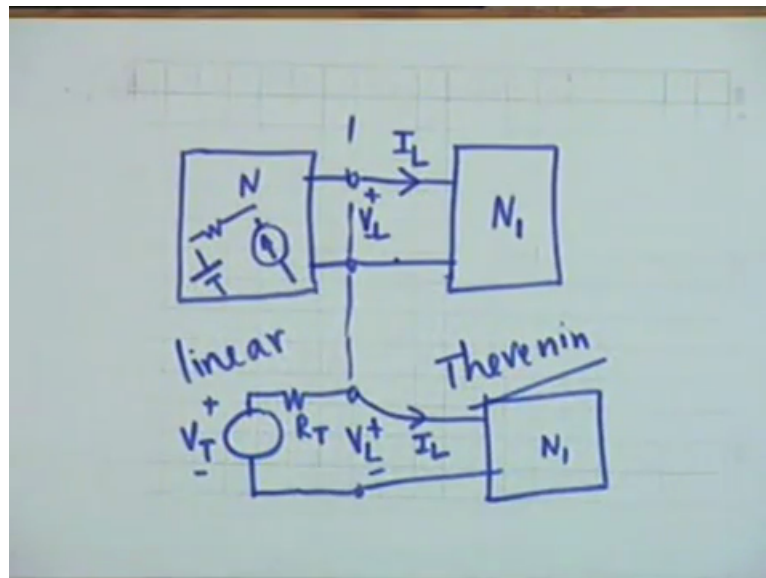 I_L
N
+
V_L
-
N_1
linear
Thevenin
+
V_T
-
R_T
V_L
+
-
I_L
N_1